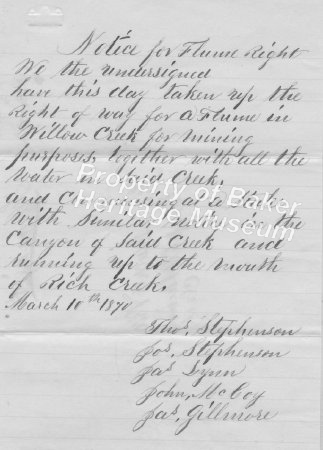 Notice for Flume Right
We the undersigned
have this day taken up the
Right of way for a Flume in
Willow Creek for mining
purposes, together with all the
Water in Said Creek,
and Commencing at a Stake
with Similar notice in the
Canyon of Said Creek and
running up to the mouth
of Rich Creek.
March 10th 1870
Thos. Stephenson
Jos. Stephenson
Jas Lynn
John McCoy
Jas. Gillmore
Property of Baker
Heritage Museum